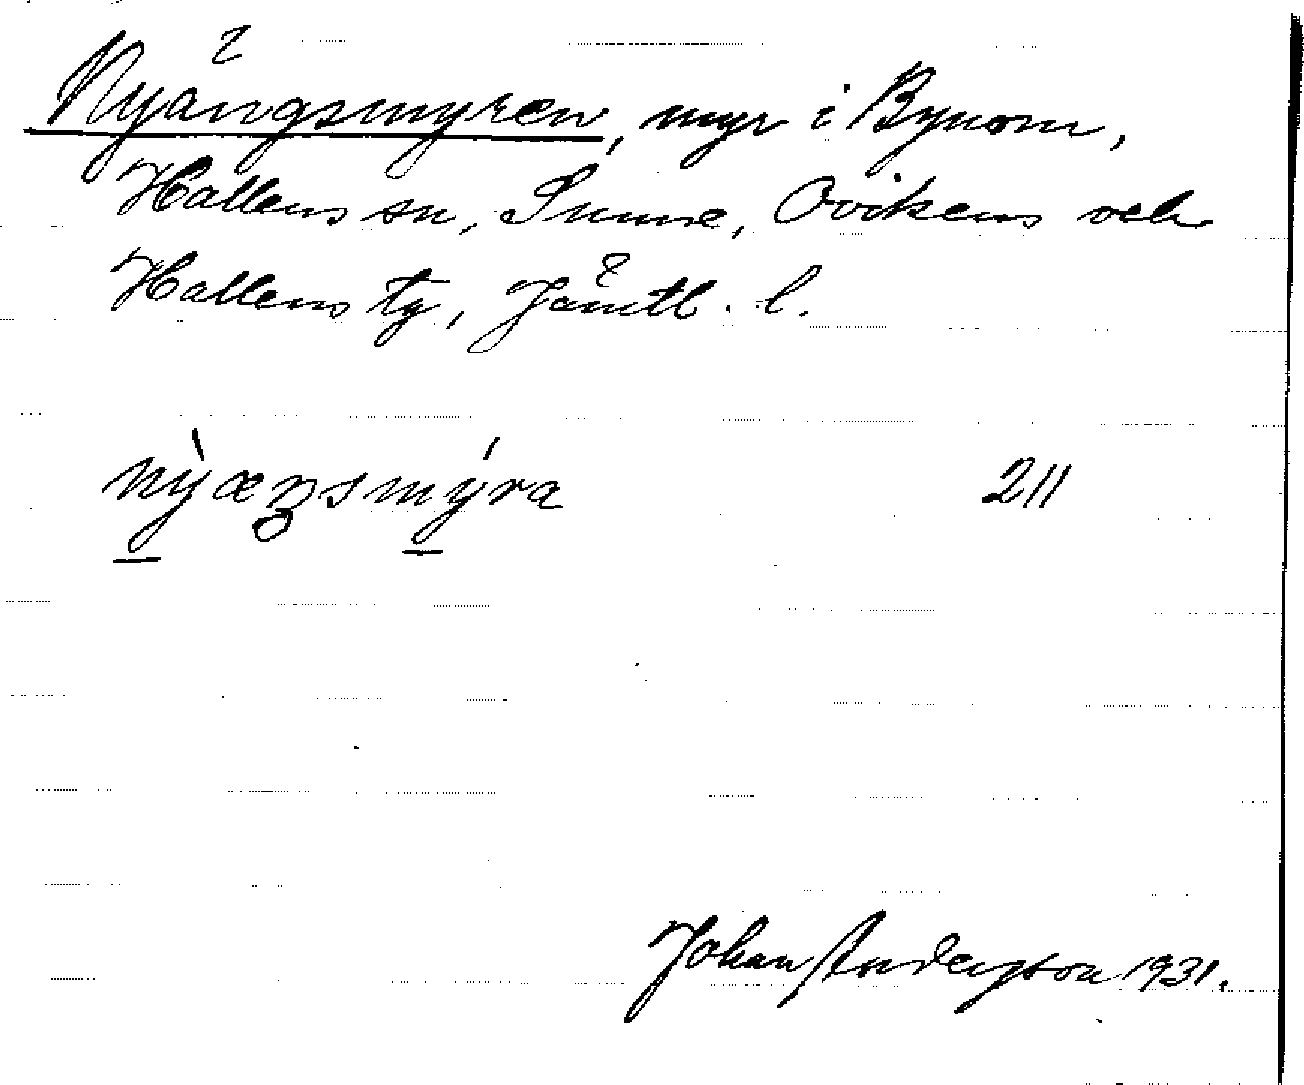 Nyängsmyren, myr i Bynom,
Hallens sn, Sunne, Ovikens och
Hallens tg, Jämtl. l.
nỳæŋsmýra 211
Johan Anderson 1931.